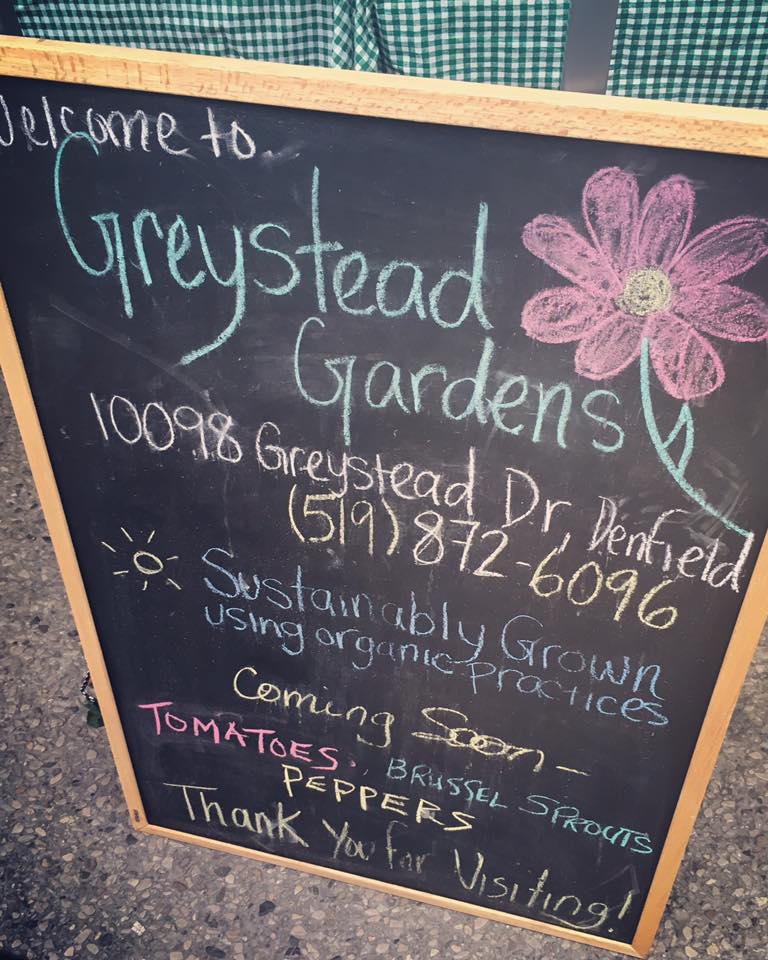 Welcome to.
Greystead
Gardens
10098 Greystead Dr, Denfield
(519) 872-6096
Sustainably Grown
using organic practices
Coming Soon -
TOMATOES, BRUSSEL SPROUTS
PEPPERS
Thank You for Visiting!